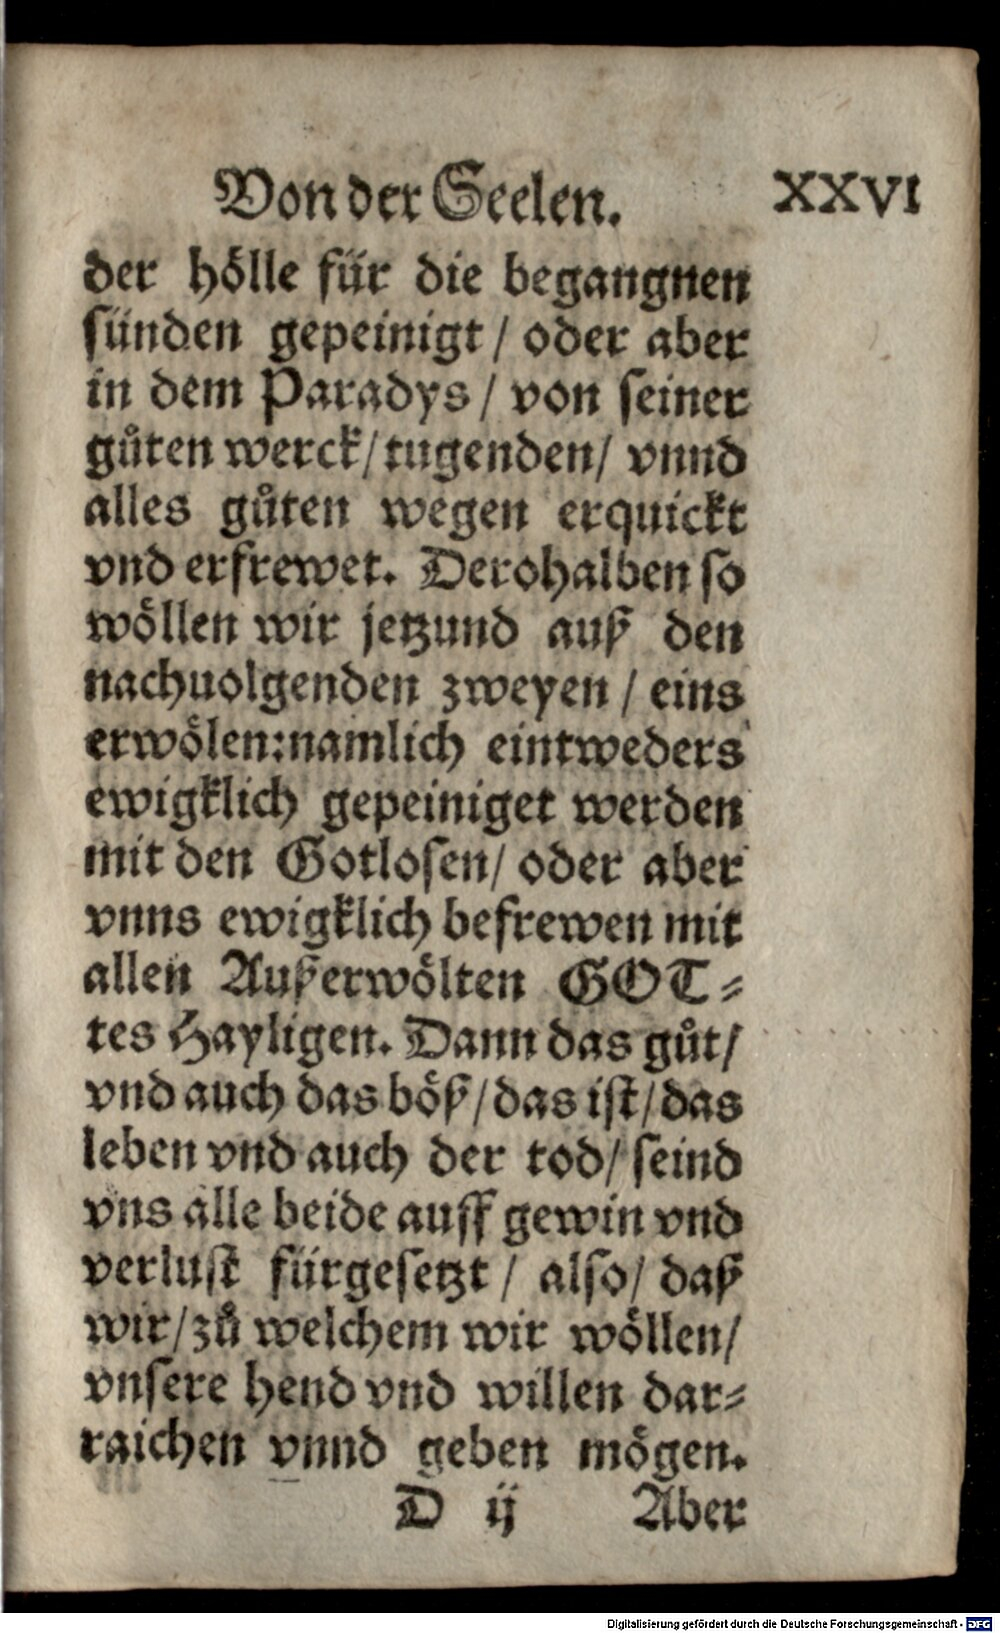 Von der Seelen. XXVI
der hölle für die begangnen
sünden gepeinigt / oder aber
in dem Paradys / von seiner
gůten werck / tugenden / vnnd
alles gůten wegen erquickt
vnd erfrewet. Derohalben so
wöllen wir jetzund auß den
nachuolgenden zweyen / eins
erwölen: namlich eintweders
ewigklich gepeiniget werden
mit den Gotlosen / oder aber
vnns ewigklich befrewen mit
allen Außerwölten GOT⸗
tes Hayligen. Dann das gůt /
vnd auch das böß / das ist / das
leben vnd auch der tod / seind
vns alle beide auff gewin vnd
verlust fürgesetzt / also / daß
wir / zů welchem wir wöllen /
vnsere hend vnd willen dar⸗
raichen vnnd geben mögen.
D ij Aber
Digitalisierung gefördert durch die Deutsche Forschungsgemeinschaft - DFG